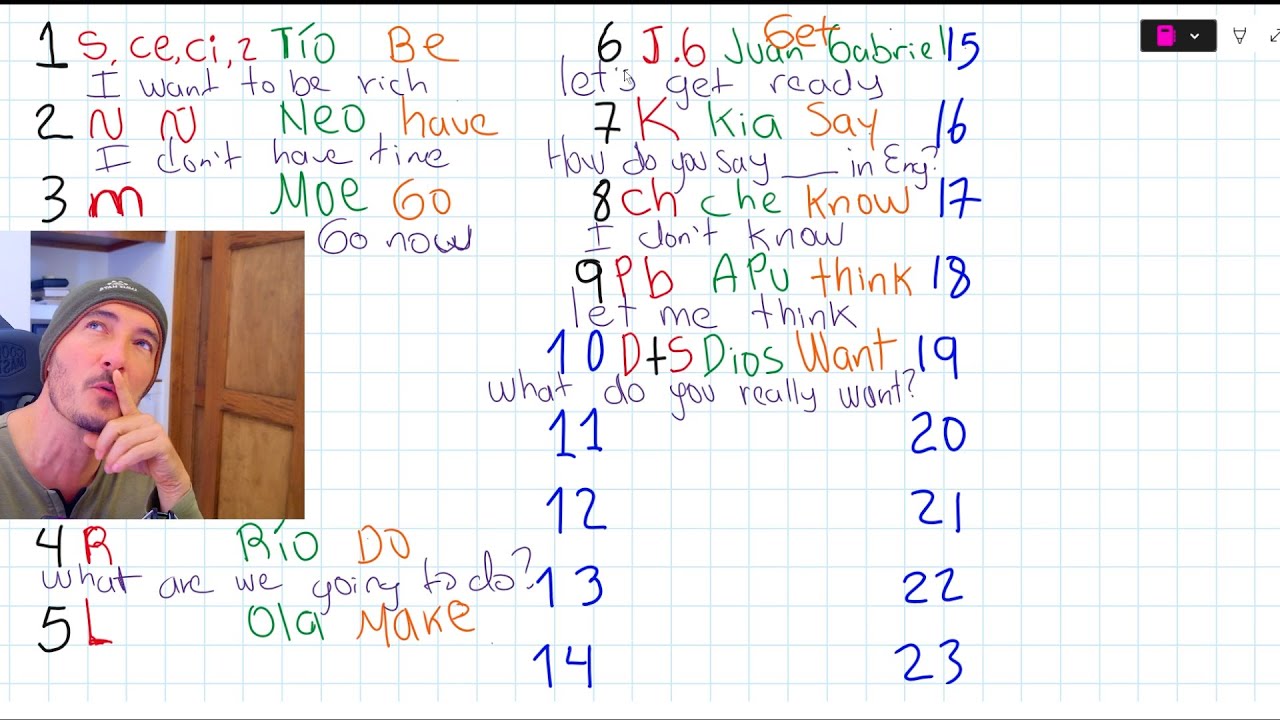 1 S, ce, ci, z Tío Be
I want to be rich
2 N Ñ Neo have
I don't have time
3 m Moe Go
Go now
4 R Río Do
What are we going to do?
5 L Ola Make
6 J.G Juan Gabriel Get 15
let's get ready
7 K Kia Say 16
How do you say ___ in Eng?
8 ch che Know 17
I don't know
9 Pb APu think 18
let me think
10 D+S Dios Want 19
What do you really want?
11 20
12 21
13 22
14 23